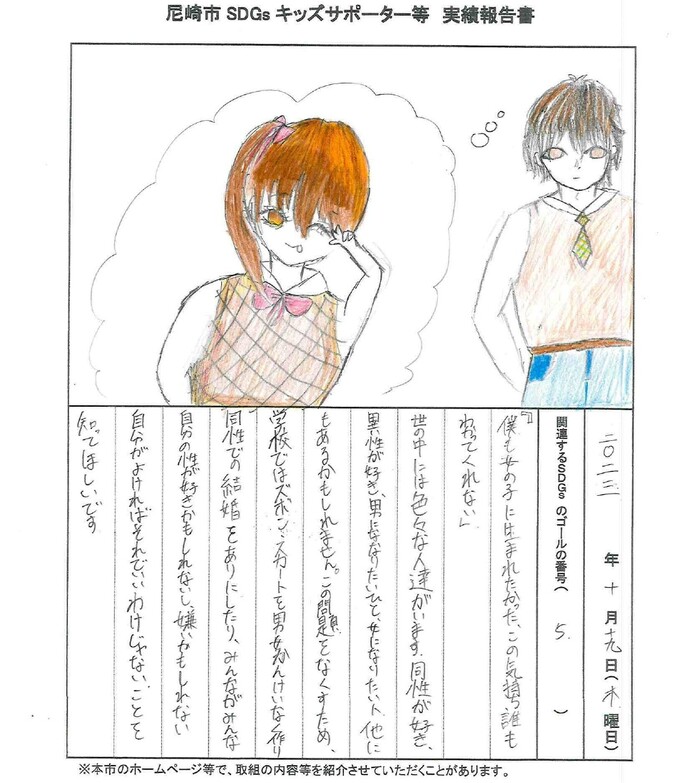 尼崎市 SDGs キッズサポーター等 実績報告書
二〇二三 年 十 月 十九 日(木 曜日)
関連するSDGs のゴールの番号( 5. )
『僕も女の子に生まれたかった、この気持ち誰も
わかってくれない」
世の中には色々な人達がいます。同性が好き、
異性が好き、男になりたいひと、女になりたい人、他に
もあるかもしれません。この問題をなくすため、
学校ではズボン、スカートを男女かんけいなく作り
同性での結婚をありにしたり、みんながみんな
自分の性が好きかもしれないし、嫌いかもしれない
自分がよければそれでいいわけじゃない、ことを
知ってほしいです
※本市のホームページ等で、取組の内容等を紹介させていただくことがあります。